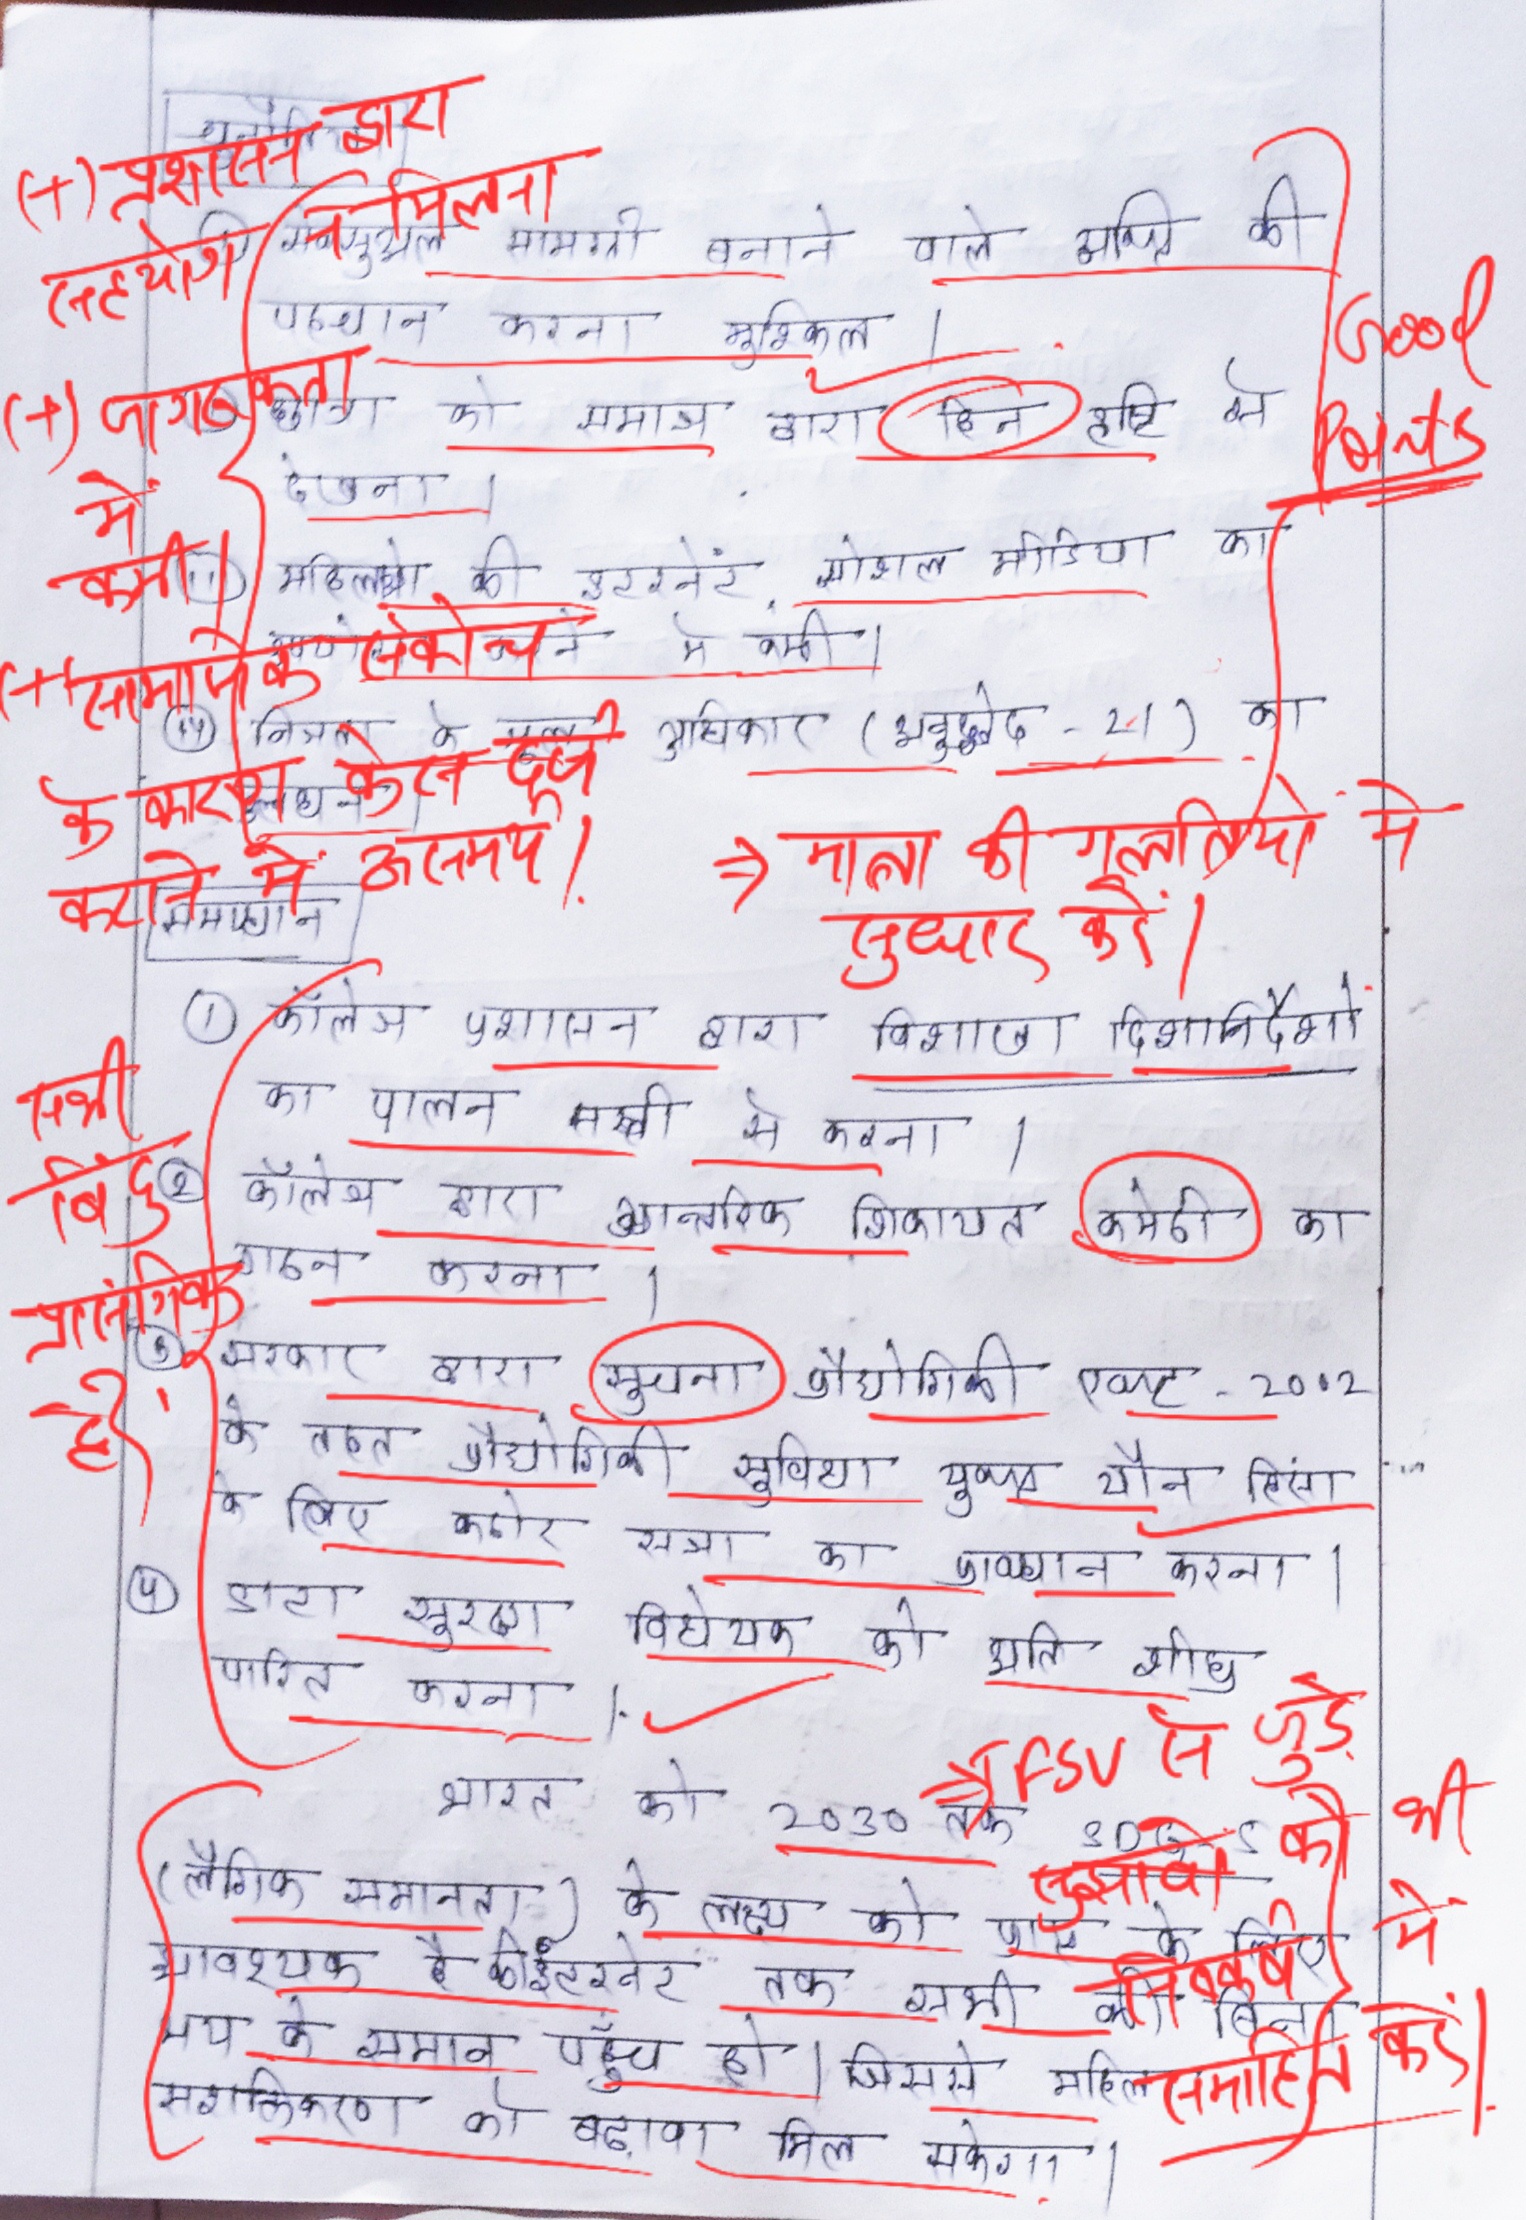 (+) प्रशासन द्वारा
सहयोग न मिलना
सेक्सुअल सामग्री बनाने वाले व्यक्ति की
पहचान करना मुश्किल।
(+) जागरूकता
में
कमी।
को समाज द्वारा हिन दृष्टि से
देखना।
Good
Points
महिलाओ की इंटरनेट, सोशल मीडिया का
करने मे कमी।
(+) सामाजिक संकोच
के कारण केस दर्ज
कराने में असमर्थ।
निजता के मूल अधिकार (अनुच्छेद - 21) का
उलंघन।
⇒ मात्रा की गलतियो मे
सुधार करें।
समाधान
① कॉलेज प्रशासन द्वारा विशाखा दिशानिर्देशों
का पालन सख्ती से करना।
② कॉलेज द्वारा आन्तरिक शिकायत कमेठी का
गठन करना।
सभी
बिंदु
प्रासंगिक
हैं।
③ सरकार द्वारा सूचना प्रौद्योगिकी एक्ट - 2002
के तहत प्रौद्योगिकी सुविधा युक्त यौन हिंसा
के लिए कठोर सजा का प्रावधान करना।
④ डाटा सुरक्षा विधेयक को अति शीघ्र
पारित करना।
⇒ TFSV से जुड़े
सुझावो को भी
निष्कर्ष में
समाहित करें।
भारत को 2030 तक SDG-5
(लैगिक समानता) के लक्ष्य को प्राप्त के लिए
आवश्यक है की इंटरनेट तक सभी की बिना
भय के समान पहुँच हो। जिससे महिला
सशक्तिकरण को बढ़ावा मिल सकेगा।